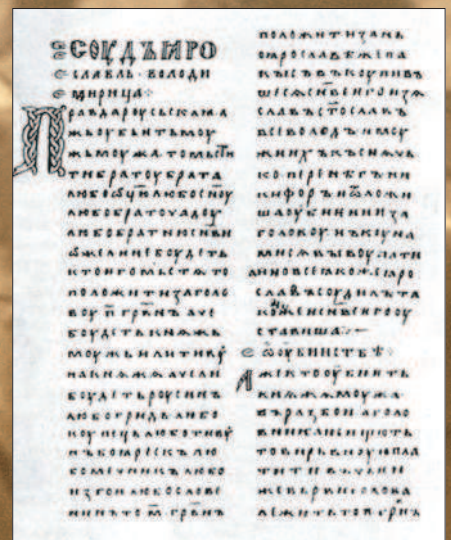 СОУДЪ ІАРО
СЛАВЛЬ · ВОЛОДИ
МИРИЦА
Правдароусьскаꙗа
жьоубьитьмоу
жьмоужа.томьсти
тибратоубрата
любоѿц҃юлюбосн҃оу
любобратоучадоу
любобратнюсн҃ви
ѡжелиниебоудеть
ктоиегомьстѧто
положитизаголо
воу п҃ грв҃нъ аче
боудетькнѧжь
моужьилитивоу
накнѧжѧачели
боудетьроусинъ
любогридьлюбо
коупьцьлюботивоу
нъбоꙗрескълю
бомечникълюбо
изгоилюбослове
нинъто м҃ грв҃нъ
положитизань
поꙗрославѣжепа
кысъвъкоупивъ
шесѧсн҃веиегоизѧ
славъст҃ославъ
всеволодъимоу
жиихъкъснѧчь
коперенѣгъни
кифоръиѿложи
шаоубиениеза
головоунъкоуна
мисѧвыкоупати
аиноевсеꙗкожеꙗро
славъсоудилъта
кожеисн҃веиегооу
ставиша
ѡоубииствѣ
Ажектооубиить
кнѧжамоужа
въразбоиаголо
вниканеищють
товирьвноуюпла
титивъчьеи
жевьрвиголова
лежитьто п҃ грв҃нъ